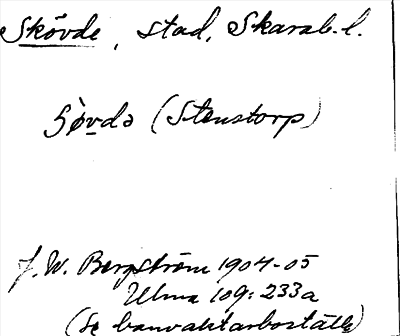 Skövde, stad, Skarab. l.
(Stenstorp)
J. W. Bergström 1904-05
Ulma 109: 233a
(Se banvaktarboställe)